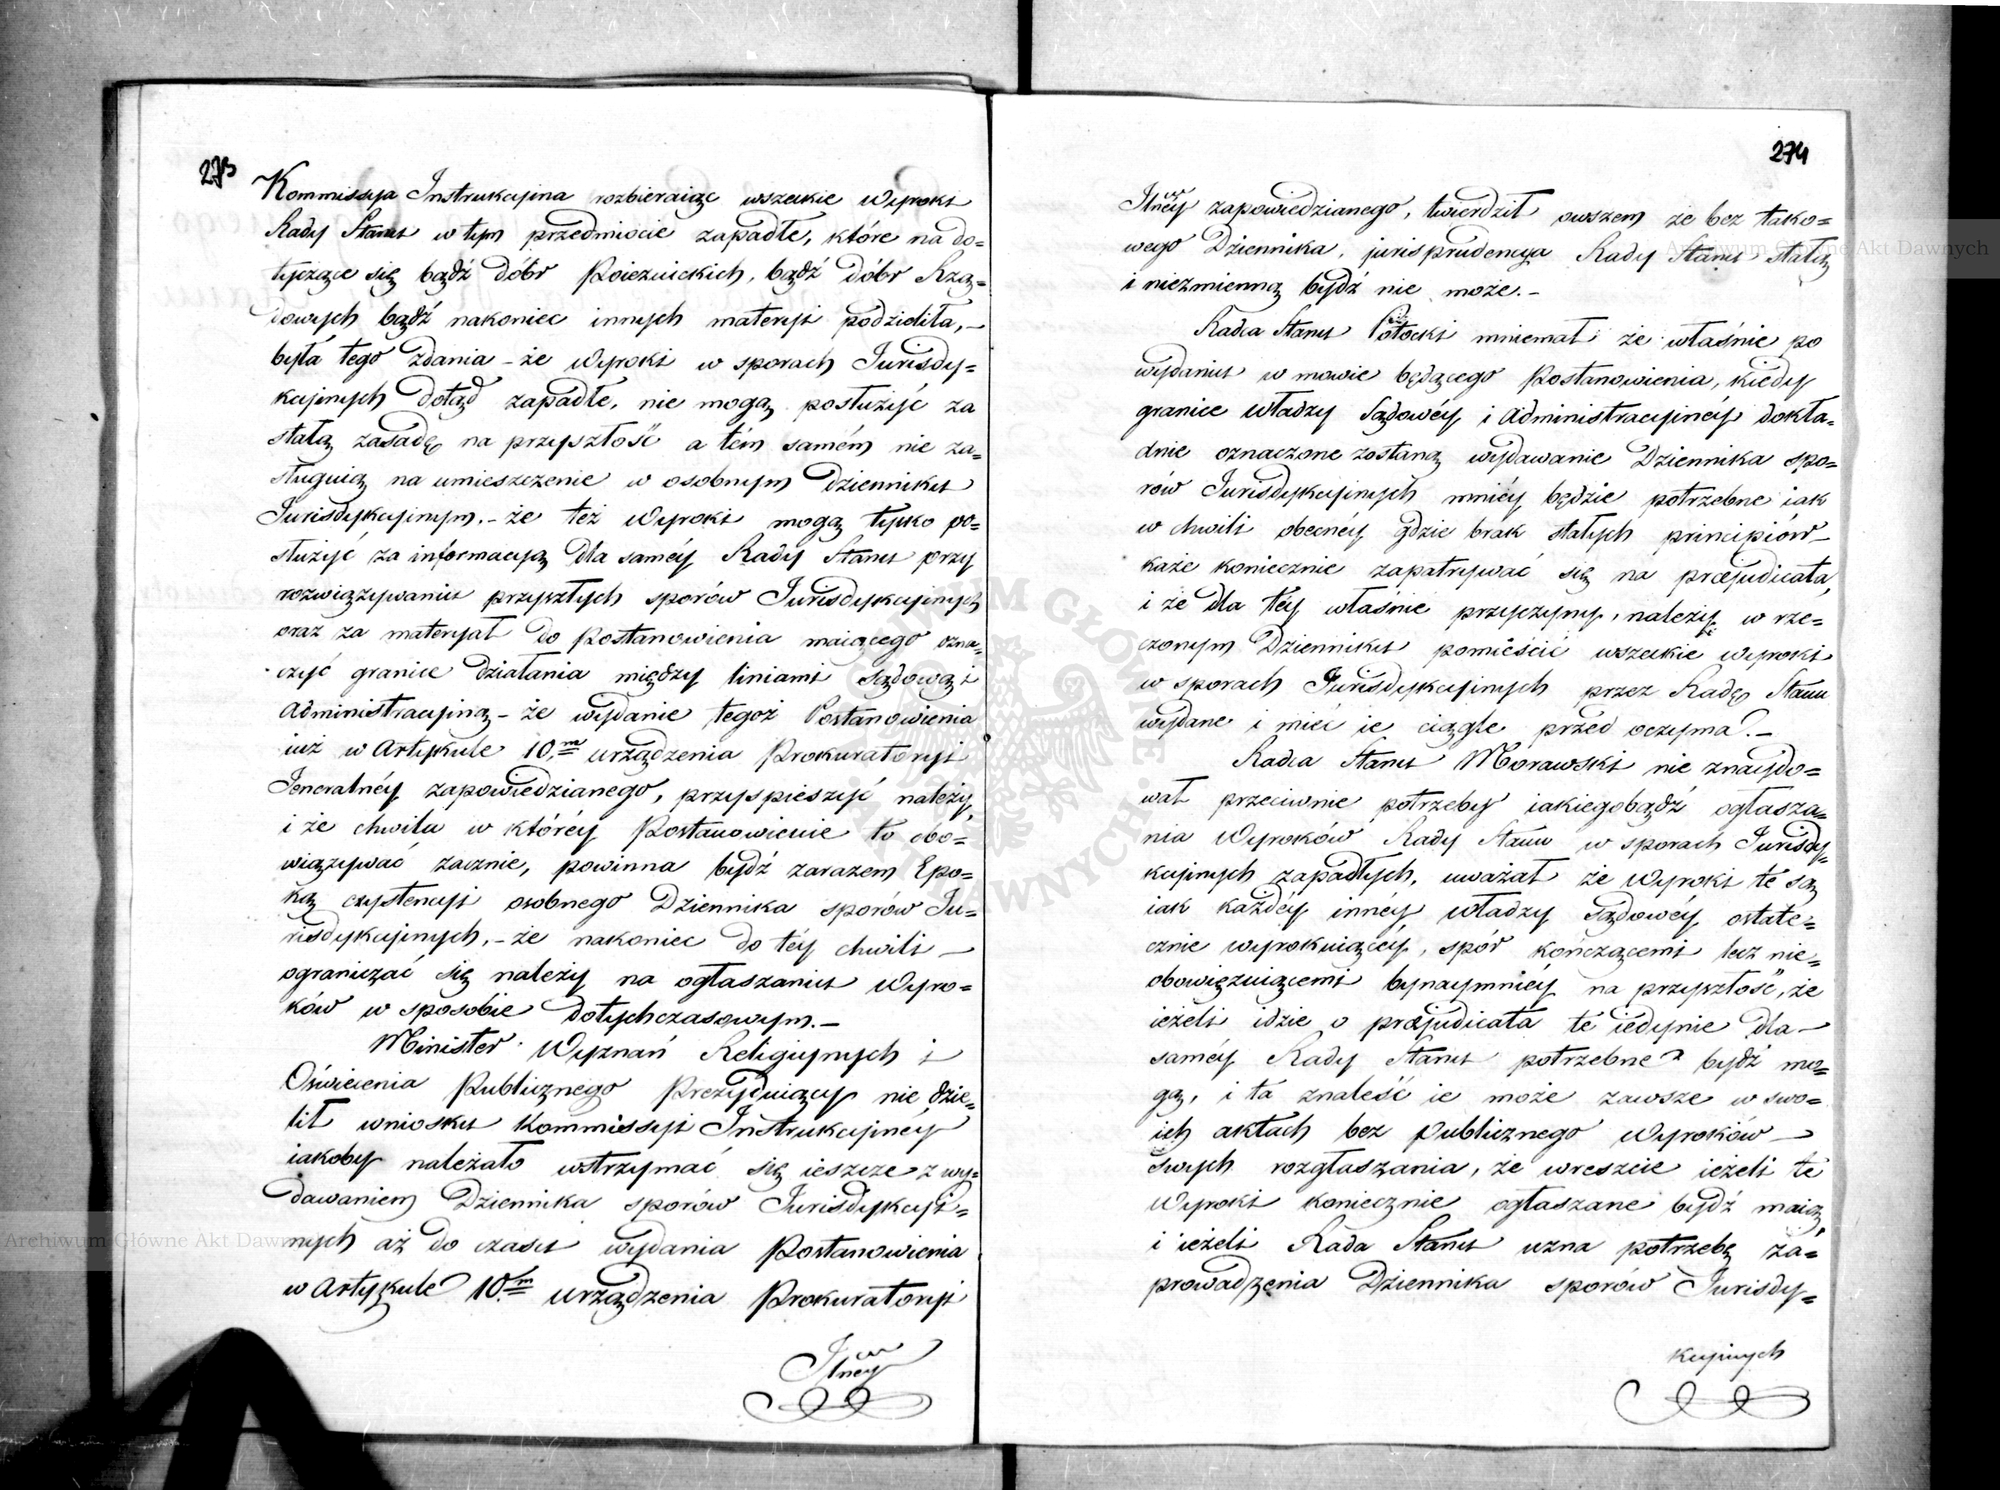 273
Kommissya Instrukcyjna rozbieraiąc wszelkie Wyroki
Rady Stanu w tym przedmiocie zapadłe, które na do=
tyczące się bądź dóbr Poiezuickich, bądź dóbr Rzą=
dowych bądź nakoniec innych materyi podzieliła, –
była tego zdania – że Wyroki w sporach Jurisdy=
kcyinych dotąd zapadłe, nie mogą posłużyć za
stałą zasadę na przyszłość a tém samém nie za=
sługuią na umieszczenie w osobnym Dzienniku
Jurisdykcyinym. – że też Wyroki mogą tylko po=
służyć za informacyą dla saméy Rady Stanu przy
rozwiązywaniu przyszłych sporów Jurisdykcyinych
oraz za materyał do Postanowienia maiącego ozna=
czyć granice działania między liniami Sądową i
Administracyiną – że wydanie tegoż Postanowienia
iuż w Artykule 10.m urządzenia Prokuratoryi
Jeneralnéy zapowiedzianego, przyspieszyć należy,
i że chwila w któréy Postanowienie to obo=
wiązywać zacznie, powinna bydź zarazem Epo=
ką exystencyi osobnego Dziennika sporów Ju=
risdykcyinych, – że nakoniec do téy chwili –
ograniczać się należy na ogłaszaniu Wyro=
ków w sposobie dotychczasowym. –
Minister Wyznań Religiynych i
Oświecenia Publicznego Prezyduiący nie dzie=
lił wniosku Kommissyi Instrukcyinéy
iakoby należało wstrzymać się ieszcze z wy=
dawaniem Dziennika sporów Jurisdykcyi=
nych aż do czasu wydania Postanowienia
w Artykule 10.m urządzenia Prokuratoryi
Jlnéy
274
Jlnéy zapowiedzianego, twierdził owszem że bez tako=
wego Dziennika, jurisprudencya Rady Stanu stałą
i niezmienną bydź nie może. –
Radca Stanu Potocki mniemał że właśnie po
wydaniu w mowie będącego Postanowienia, kiedy
granice władzy Sądowéy i Administracyinéy dokła=
dnie oznaczone zostaną wydawanie Dziennika spo=
rów Jurisdykcyinych mniéy będzie potrzebne iak
w chwili obecnéy gdzie brak stałych principiów –
każe koniecznie zapatrywać się na præjudicata,
i że dla téy właśnie przyczyny, należy w rze=
czonym Dzienniku pomieścić wszelkie wyroki
w sporach Jurisdykcyinych przez Radę Stanu
wydane i mieć ie ciągle przed oczyma. –
Radca Stanu Morawski nie znaydo=
wał przeciwnie potrzeby iakiegobądź ogłasza=
nia Wyroków Rady Stanu w sporach Jurisdy=
kcyinych zapadłych, uważał że Wyroki te są
iak każdéy innéy władzy Sądowéy ostate=
cznie wyrokuiącéy, spór kończącemi lecz nie=
obowięzuiącemi bynaymniéy na przyszłość, że
ieżeli idzie o præjudicata te iedynie dla –
saméy Rady Stanu potrzebne bydź mo=
gą, i ta znaleść ie może zawsze w swo=
ich aktach bez publicznego Wyroków –
swych rozgłaszania, że wreszcie ieżeli te
Wyroki koniecznie ogłaszane bydź maią,
i ieżeli Rada Stanu uzna potrzebę za=
prowadzenia Dziennika sporów Jurisdy=
kcyinych
Archiwum Główne Akt Dawnych
Archiwum Główne Akt Dawnych